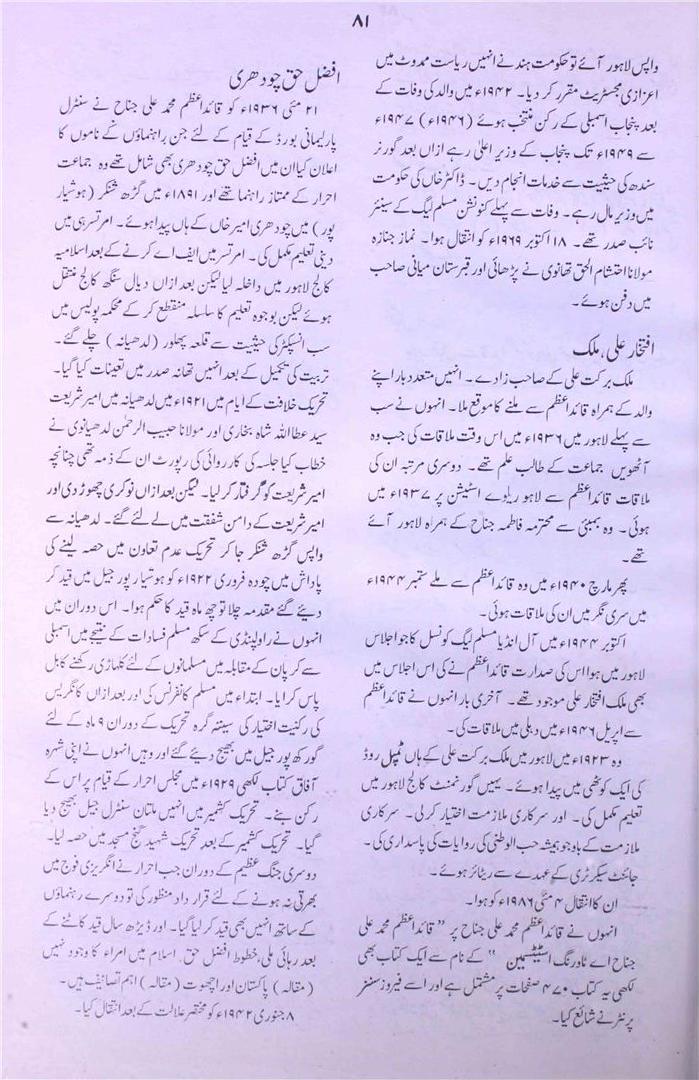 ۸۱
واپس لاہور آئے تو حکومت ہند نے انہیں ریاست ممدوٹ میں
اعزازی مجسٹریٹ مقرر کر دیا۔ ۱۹۴۲ء میں والد کی وفات کے
بعد پنجاب اسمبلی کے رکن منتخب ہوئے (۱۹۴۶ء) ۱۹۴۷ء
سے ۱۹۴۹ء تک پنجاب کے وزیر اعلیٰ رہے ازاں بعد گورنر
سندھ کی حیثیت سے خدمات انجام دیں۔ ڈاکٹر خاں کی حکومت
میں وزیر مال رہے۔ وفات سے پہلے کنونشن مسلم لیگ کے سینئر
نائب صدر تھے۔ ۱۸ اکتوبر ۱۹۶۹ء کو انتقال ہوا۔ نماز جنازہ
مولانا احتشام الحق تھانوی نے پڑھائی اور قبرستان میانی صاحب
میں دفن ہوئے۔
افتخار علی، ملک
ملک برکت علی کے صاحب زادے۔ انہیں متعدد بار اپنے
والد کے ہمراہ قائداعظم سے ملنے کا موقع ملا۔ انہوں نے سب
سے پہلے لاہور میں ۱۹۳۶ء میں اس وقت ملاقات کی جب وہ
آٹھویں جماعت کے طالب علم تھے۔ دوسری مرتبہ ان کی
ملاقات قائداعظم سے لاہور ریلوے اسٹیشن پر ۱۹۳۷ء میں
ہوئی۔ وہ بمبئی سے محترمہ فاطمہ جناح کے ہمراہ لاہور آئے
تھے۔
پھر مارچ ۱۹۴۰ء میں وہ قائداعظم سے ملے ستمبر ۱۹۴۴ء
میں سری نگر میں ان کی ملاقات ہوئی۔
اکتوبر ۱۹۴۴ء میں آل انڈیا مسلم لیگ کونسل کا جو اجلاس
لاہور میں ہوا اس کی صدارت قائداعظم نے کی اس اجلاس میں
بھی ملک افتخار علی موجود تھے۔ آخری بار انہوں نے قائداعظم
سے اپریل ۱۹۴۶ء میں دہلی میں ملاقات کی۔
وہ ۱۹۲۳ء میں لاہور میں ملک برکت علی کے ہاں ٹمپل روڈ
کی ایک کوٹھی میں پیدا ہوئے۔ یہیں گورنمنٹ کالج لاہور میں
تعلیم مکمل کی۔ اور سرکاری ملازمت اختیار کر لی۔ سرکاری
ملازمت کے باوجو ہمیشہ حب الوطنی کی روایات کی پاسداری کی۔
جائنٹ سیکرٹری کے عہدے سے ریٹائر ہوئے۔
ان کا انتقال ۴ مئی ۱۹۸۶ء کو ہوا۔
انہوں نے قائداعظم محمد علی جناح پر “قائداعظم محمد علی
جناح اے ٹاورنگ اسٹیٹسمین” کے نام سے ایک کتاب بھی
لکھی یہ کتاب ۴۷۰ صفحات پر مشتمل ہے اور اسے فیروز سنز
پرنٹر نے شائع کیا۔
افضل حق چودھری
۲۱ مئی ۱۹۳۶ء کو قائداعظم محمد علی جناح نے سنٹرل
پارلیمانی بورڈ کے قیام کے لئے جن راہنماؤں کے ناموں کا
اعلان کیا ان میں افضل حق چودھری بھی شامل تھے وہ جماعت
احرار کے ممتاز راہنما تھے اور ۱۸۹۱ء میں گڑھ شنکر (ہوشیار
پور) میں چودھری امیر خاں کے ہاں پیدا ہوئے۔ امرتسر ہی میں
دینی تعلیم مکمل کی۔ امرتسر میں ایف اے کرنے کے بعد اسلامیہ
کالج لاہور میں داخلہ لیا لیکن بعد ازاں دیال سنگھ کالج منتقل
ہوئے لیکن بوجوہ تعلیم کا سلسلہ منقطع کر کے محکمہ پولیس میں
سب انسپکٹر کی حیثیت سے قلعہ پھلور (لدھیانہ) چلے گئے۔
تربیت کی تکمیل کے بعد انہیں تھانہ صدر میں تعینات کیا گیا۔
تحریک خلافت کے ایام میں ۱۹۲۱ء میں لدھیانہ میں امیر شریعت
سید عطا اللہ شاہ بخاری اور مولانا حبیب الرحمن لدھیانوی نے
خطاب کیا جلسہ کی کارروائی کی رپورٹ ان کے ذمہ تھی چنانچہ
امیر شریعت کو گرفتار کر لیا۔ لیکن بعد ازاں نوکری چھوڑ دی اور
امیر شریعت کے دامن شفقت میں لے لئے گئے۔ لدھیانہ سے
واپس گڑھ شنکر جا کر تحریک عدم تعاون میں حصہ لینے کی
پاداش میں چودہ فروری ۱۹۲۲ء کو ہوشیار پور جیل میں قید کر
دیئے گئے مقدمہ چلا تو چھ ماہ قید کا حکم ہوا۔ اس دوران میں
انہوں نے راولپنڈی کے سکھ مسلم فسادات کے نتیجے میں اسمبلی
سے کرپان کے مقابلہ میں مسلمانوں کے لئے کلہاڑی رکھنے کا بل
پاس کرایا۔ ابتداء میں مسلم کانفرنس کی اور بعد ازاں کانگریس
کی رکنیت اختیار کی سیتہ گرہ تحریک کے دوران ۹ ماہ کے لئے
گورکھ پور جیل میں بھیج دیئے گئے اور وہیں انہوں نے اپنی شہرہ
آفاق کتاب لکھی ۱۹۲۹ء میں مجلس احرار کے قیام پر اس کے
رکن بنے۔ تحریک کشمیر میں انہیں ملتان سنٹرل جیل بھیج دیا
گیا۔ تحریک کشمیر کے بعد تحریک شہید گنج مسجد میں حصہ لیا۔
دوسری جنگ عظیم کے دوران جب احرار نے انگریزی فوج میں
بھرتی نہ ہونے کے لئے قرار داد منظور کی تو دوسرے رہنماؤں
کے ساتھ انہیں بھی قید کر لیا گیا۔ اور ڈیڑھ سال قید کاٹنے کے
بعد رہائی ملی، خطوط افضل حق، اسلام میں امراء کا وجود نہیں
(مقالہ) پاکستان اور اچھوت (مقالہ) اہم تصانیف ہیں۔
۸ جنوری ۱۹۴۲ء کو مختصر علالت کے بعد انتقال کیا۔